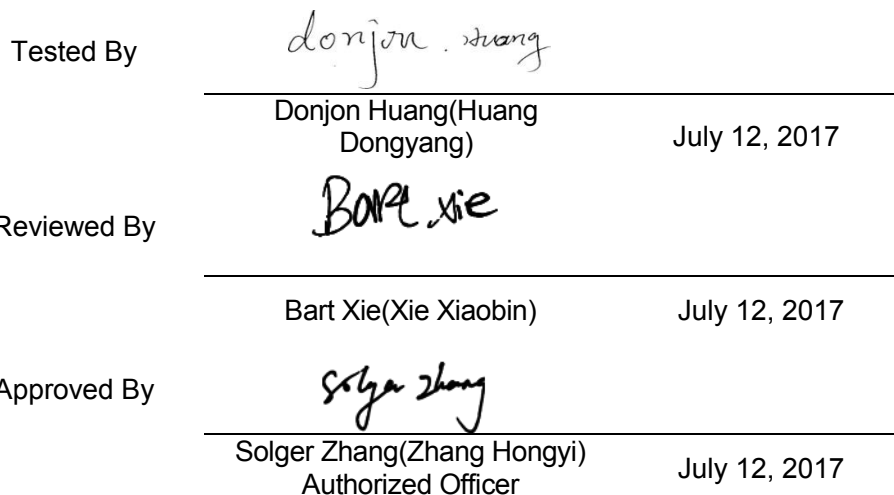 Tested By
donjon.Huang
Donjon Huang(Huang
Dongyang)
July 12, 2017
Reviewed By
Bart Xie
Bart Xie(Xie Xiaobin)
July 12, 2017
Approved By
Solger Zhang
Solger Zhang(Zhang Hongyi)
Authorized Officer
July 12, 2017